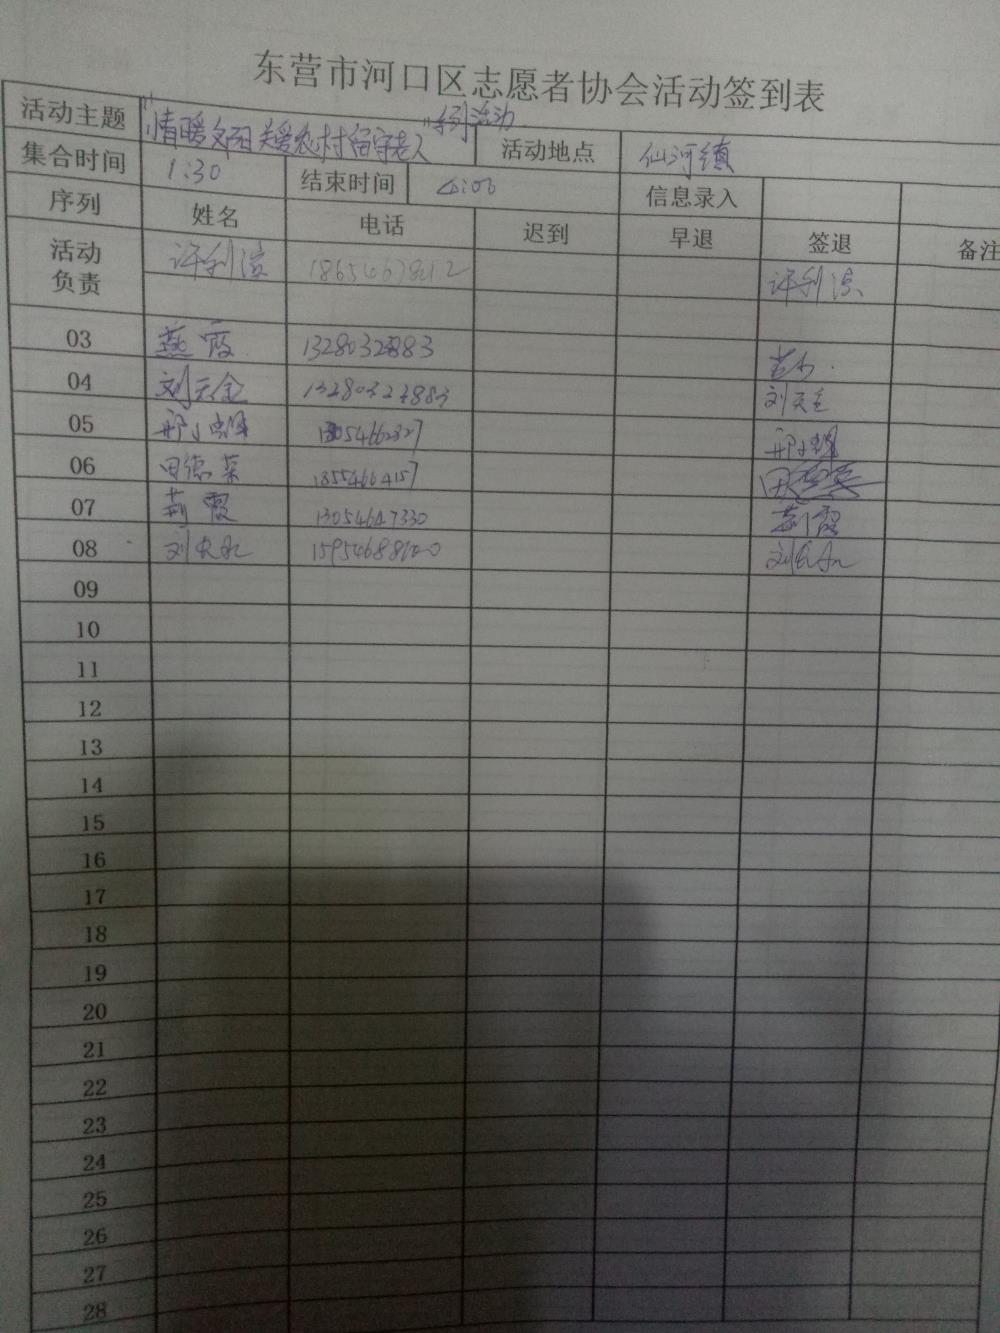 东营市河口区志愿者协会活动签到表
活动主题 "情暖夕阳 关爱农村留守老人"系列活动 活动地点 仙河镇
集合时间 1:30 结束时间 4:00 信息录入
序列 姓名 电话 迟到 早退 签退 备注
活动负责 许利 186546 许利
03 燕霞 13280323883
04 刘天金 13280323883 刘天金
05 邢小 13054662327 邢小
06 田德荣 18554664157 田
07 荊霞 13054647330 荊霞
08 刘 159546881 刘
09
10
11
12
13
14
15
16
17
18
19
20
21
22
23
24
25
26
27
28